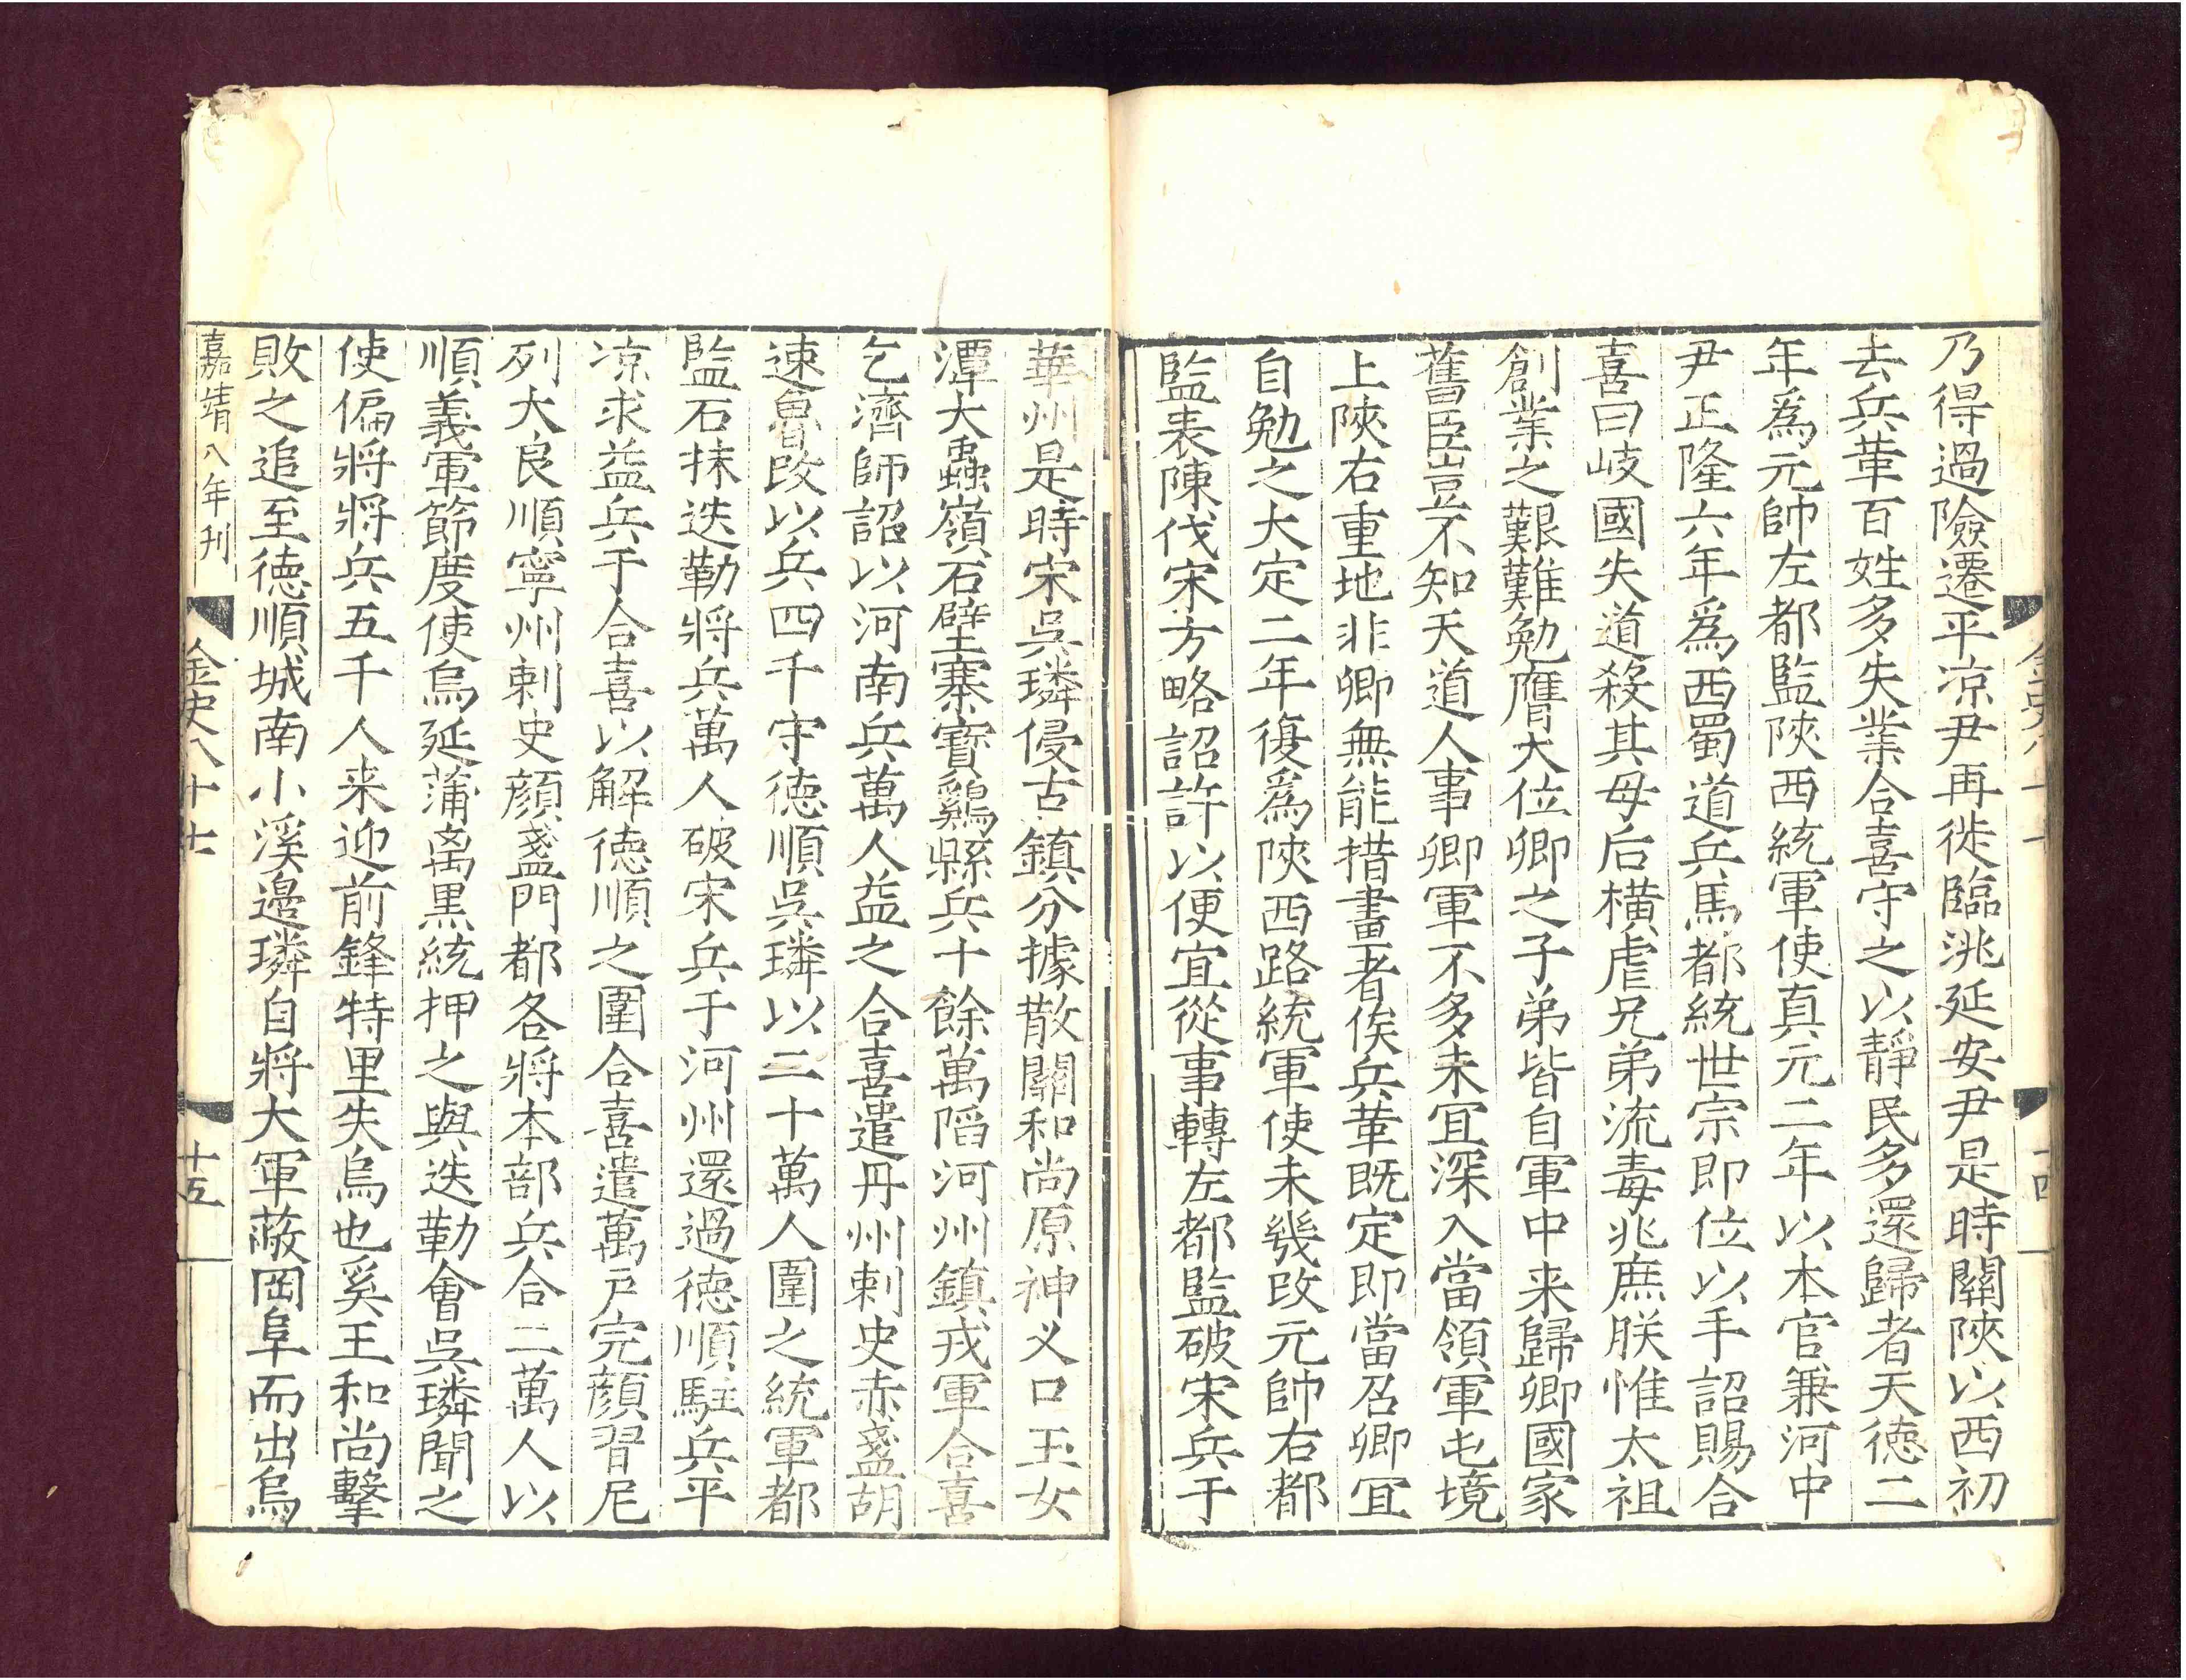 乃得過險遷平凉尹再徙臨洮延安尹是時關陝以西初
去兵革百姓多失業合喜守之以靜民多還歸者天德二
年爲元帥左都監陝西統軍使真元二年以本官兼河中
尹正隆六年爲西蜀道兵馬都統世宗即位以手詔賜合
喜曰岐國失道殺其母后橫虐兄弟流毒兆庶朕惟太祖
創業之艱難勉膺大位卿之子弟皆自軍中来歸卿國家
舊臣豈不知天道人事卿軍不多未宜深入當領軍屯境
上陝右重地非卿無能措畫者俟兵革既定即當召卿宜
自勉之大定二年復爲陝西路統軍使未幾改元帥右都
監表陳伐宋方略詔許以便宜從事轉左都監破宋兵于
十四
華州是時宋吳璘侵古鎮分據散關和尚原神义口玉女
潭大蟲嶺石壁寨寶鷄縣兵十餘萬陷河州鎮戎軍合喜
乞濟師詔以河南兵萬人益之合喜遣丹州刺史赤盞胡
速魯改以兵四千守徳順吳璘以二十萬人圍之統軍都
監石抹迭勒將兵萬人破宋兵于河州還過徳順駐兵平
凉求益兵于合喜以解徳順之圍合喜遣萬戸完顔習尼
列大良順寧州刺史顔盞門都各將本部兵合二萬人以
順義軍節度使烏延蒲离黑統押之與迭勒會吳璘聞之
使偏將將兵五千人来迎前鋒特里失烏也奚王和尚擊
敗之追至徳順城南小溪邉璘自將大軍蔽岡阜而出烏
嘉靖八年刊
金史八十七
十五